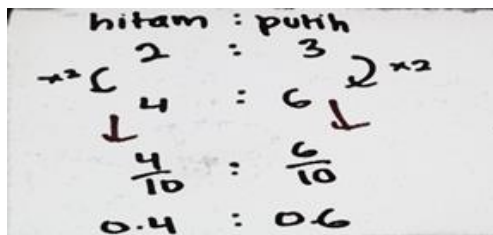 hitam : putih
2 : 3
×2 ×2
4 : 6
4/10 : 6/10
0.4 : 0.6